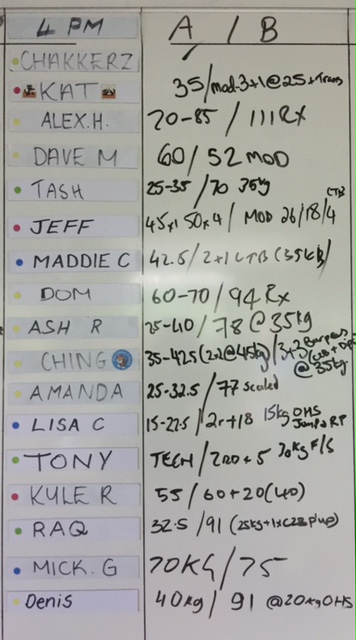 4 PM A / B
CHAKKERZ
KAT 35/mod-3+1@25+Trans
ALEX.H. 70-85 / 111 RX
DAVE M 60/52 MOD
TASH 25-35 /70 35kg
JEFF 45x1 50x4 / MOD 26/18/4 CTB
MADDIE C 42.5/2+1 CTB (35kg)
DOM 60-70 / 94 Rx
ASH R 25-40 / 78 @ 35kg
CHING 35-42.5 (2.2@45kg) / 3+3 Burpees @ 35kg
AMANDA 25-32.5 / 77 Scaled
LISA C 15-27.5 / 2r+18 15kg OHS Jump RP
TONY TECH / 2RD+5 30kg F/S
KYLE R 55 / 60+20(40)
RAQ 32.5 /91 (25kg+1xC2B
MICK. G 70KG / 75
Denis 40kg / 91 @20kg OHS